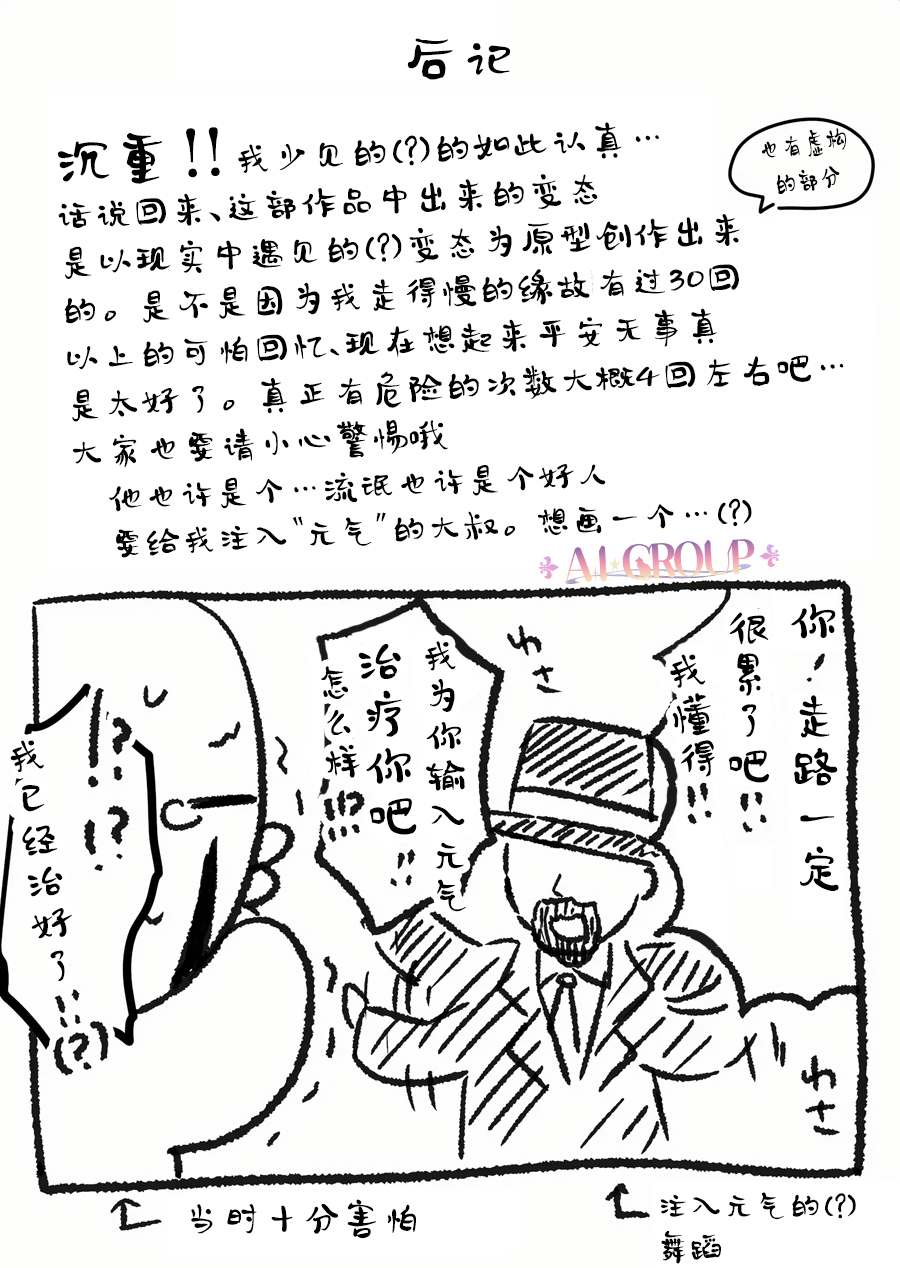 后记
沉重!!我少见的(?)的如此认真…
也有虚构
的部分
话说回来、这部作品中出来的变态
是以现实中遇见的(?)变态为原型创作出来
的。是不是因为我走得慢的缘故有过30回
以上的可怕回忆、现在想起来平安无事真
是太好了。真正有危险的次数大概4回左右吧…
大家也要请小心警惕哦
他也许是个…流氓也许是个好人
要给我注入“元气”的大叔。想画一个…(?)
A.I GROUP
你!走路一定
很累了吧!!
我懂得!!
わさ
我为你输入元气
治疗你吧!!
怎么样!!!?
!?
!!
!?
我已经治好了!!(?)
わさ
当时十分害怕
注入元气的(?)
舞蹈